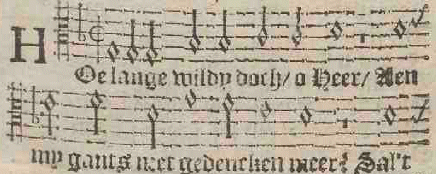 HOe lange wildy doch/ o Heer/ Aen
my gants niet gedencken meer? Sal't